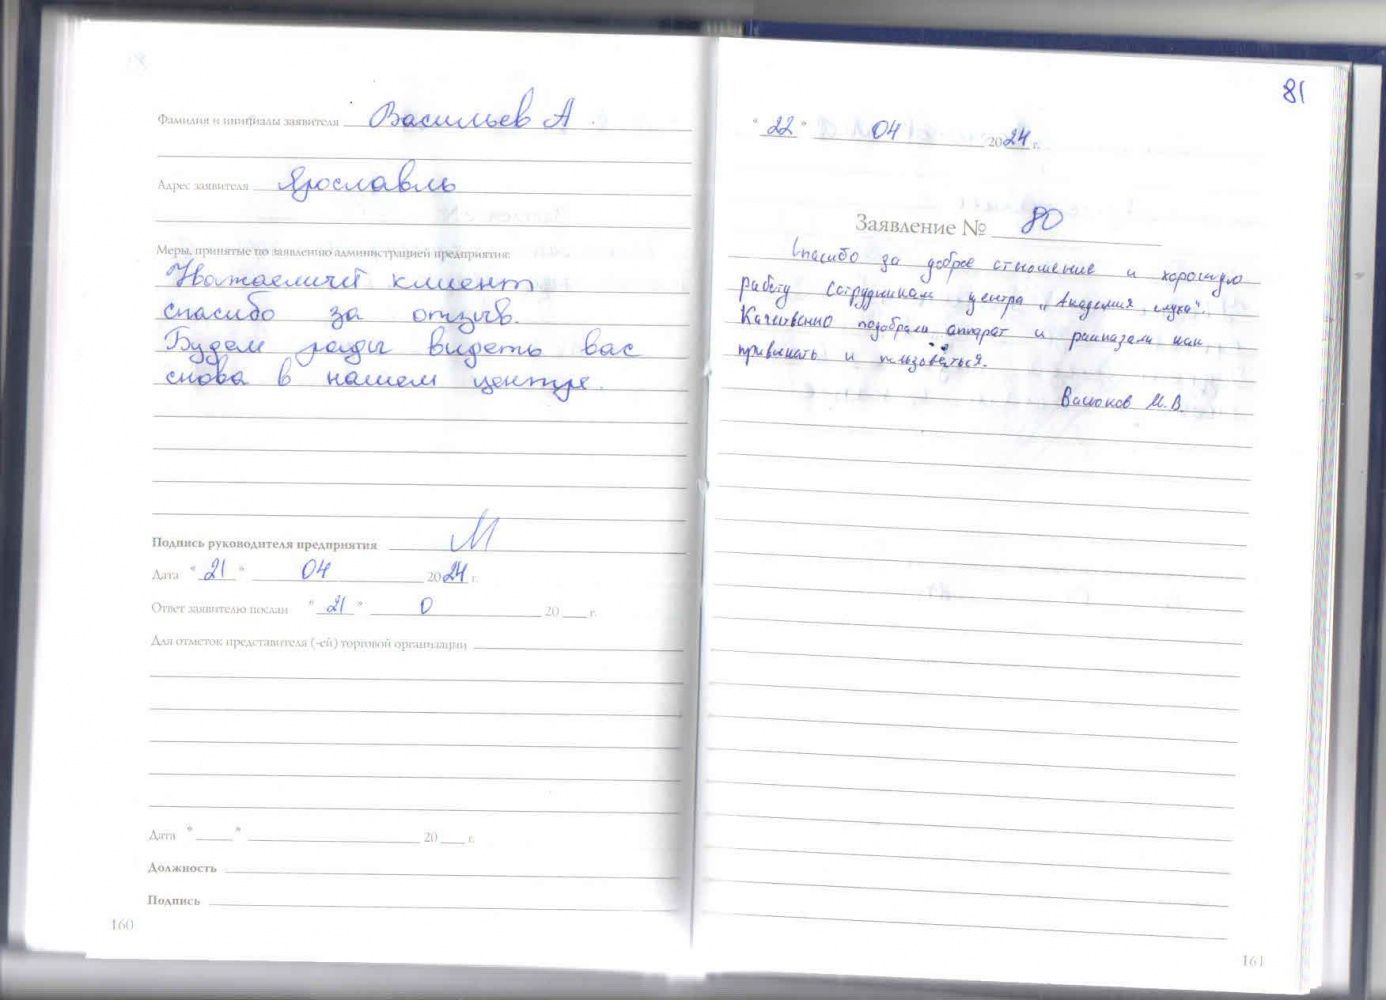 Фамилия и инициалы заявителя Васильев А.
Адрес заявителя Ярославль
Меры, принятые по заявлению администрацией предприятия:
Уважаемый клиент
спасибо за отзыв.
Будем рады видеть вас
снова в нашем центре.
Подпись руководителя предприятия
Дата "21" 04 2024 г.
Ответ заявителю послан "21" 0 20 г.
Для отметок представителя (-ей) торговой организации
Дата " " 20 г.
Должность
Подпись
160
81
"22" 04 2024 г.
Заявление № 80
Спасибо за доброе отношение и хорошую
работу сотрудникам центра "Академия слуха".
Качественно подобрали аппарат и рассказали как
привыкать и пользоваться.
М.В.
161